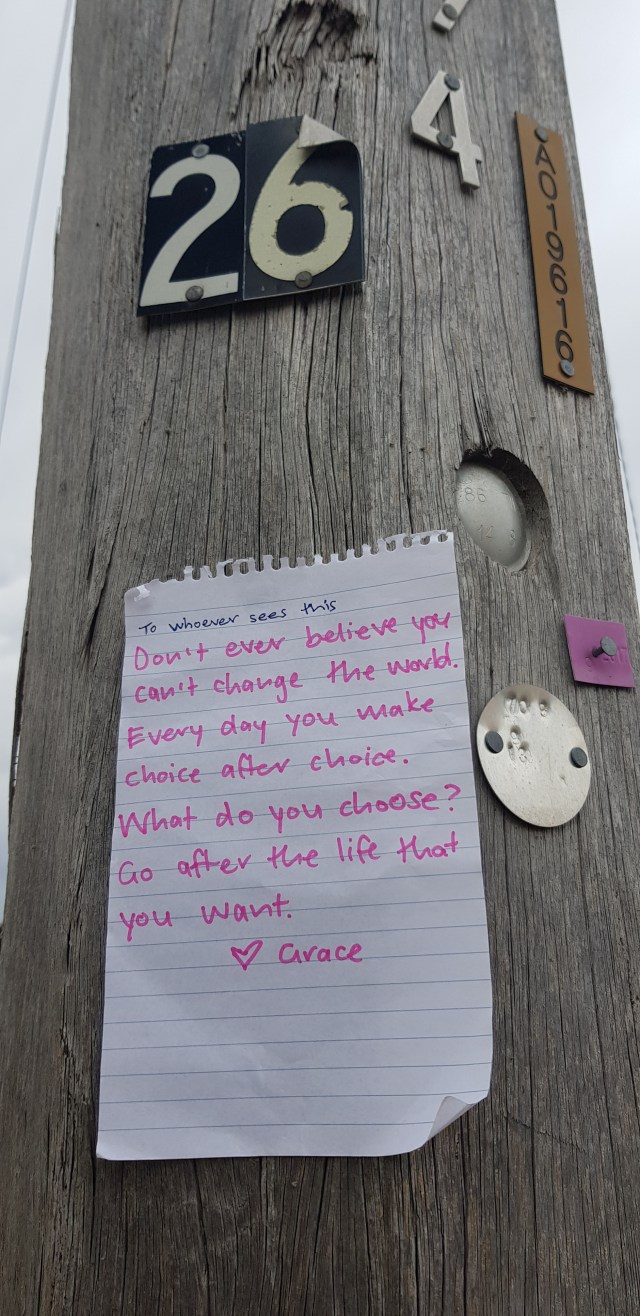 4
26
A019616
86
12
To whoever sees this
Don't ever believe you
can't change the world.
Every day you make
choice after choice.
What do you choose?
Go after the life that
you want.
♡ Grace